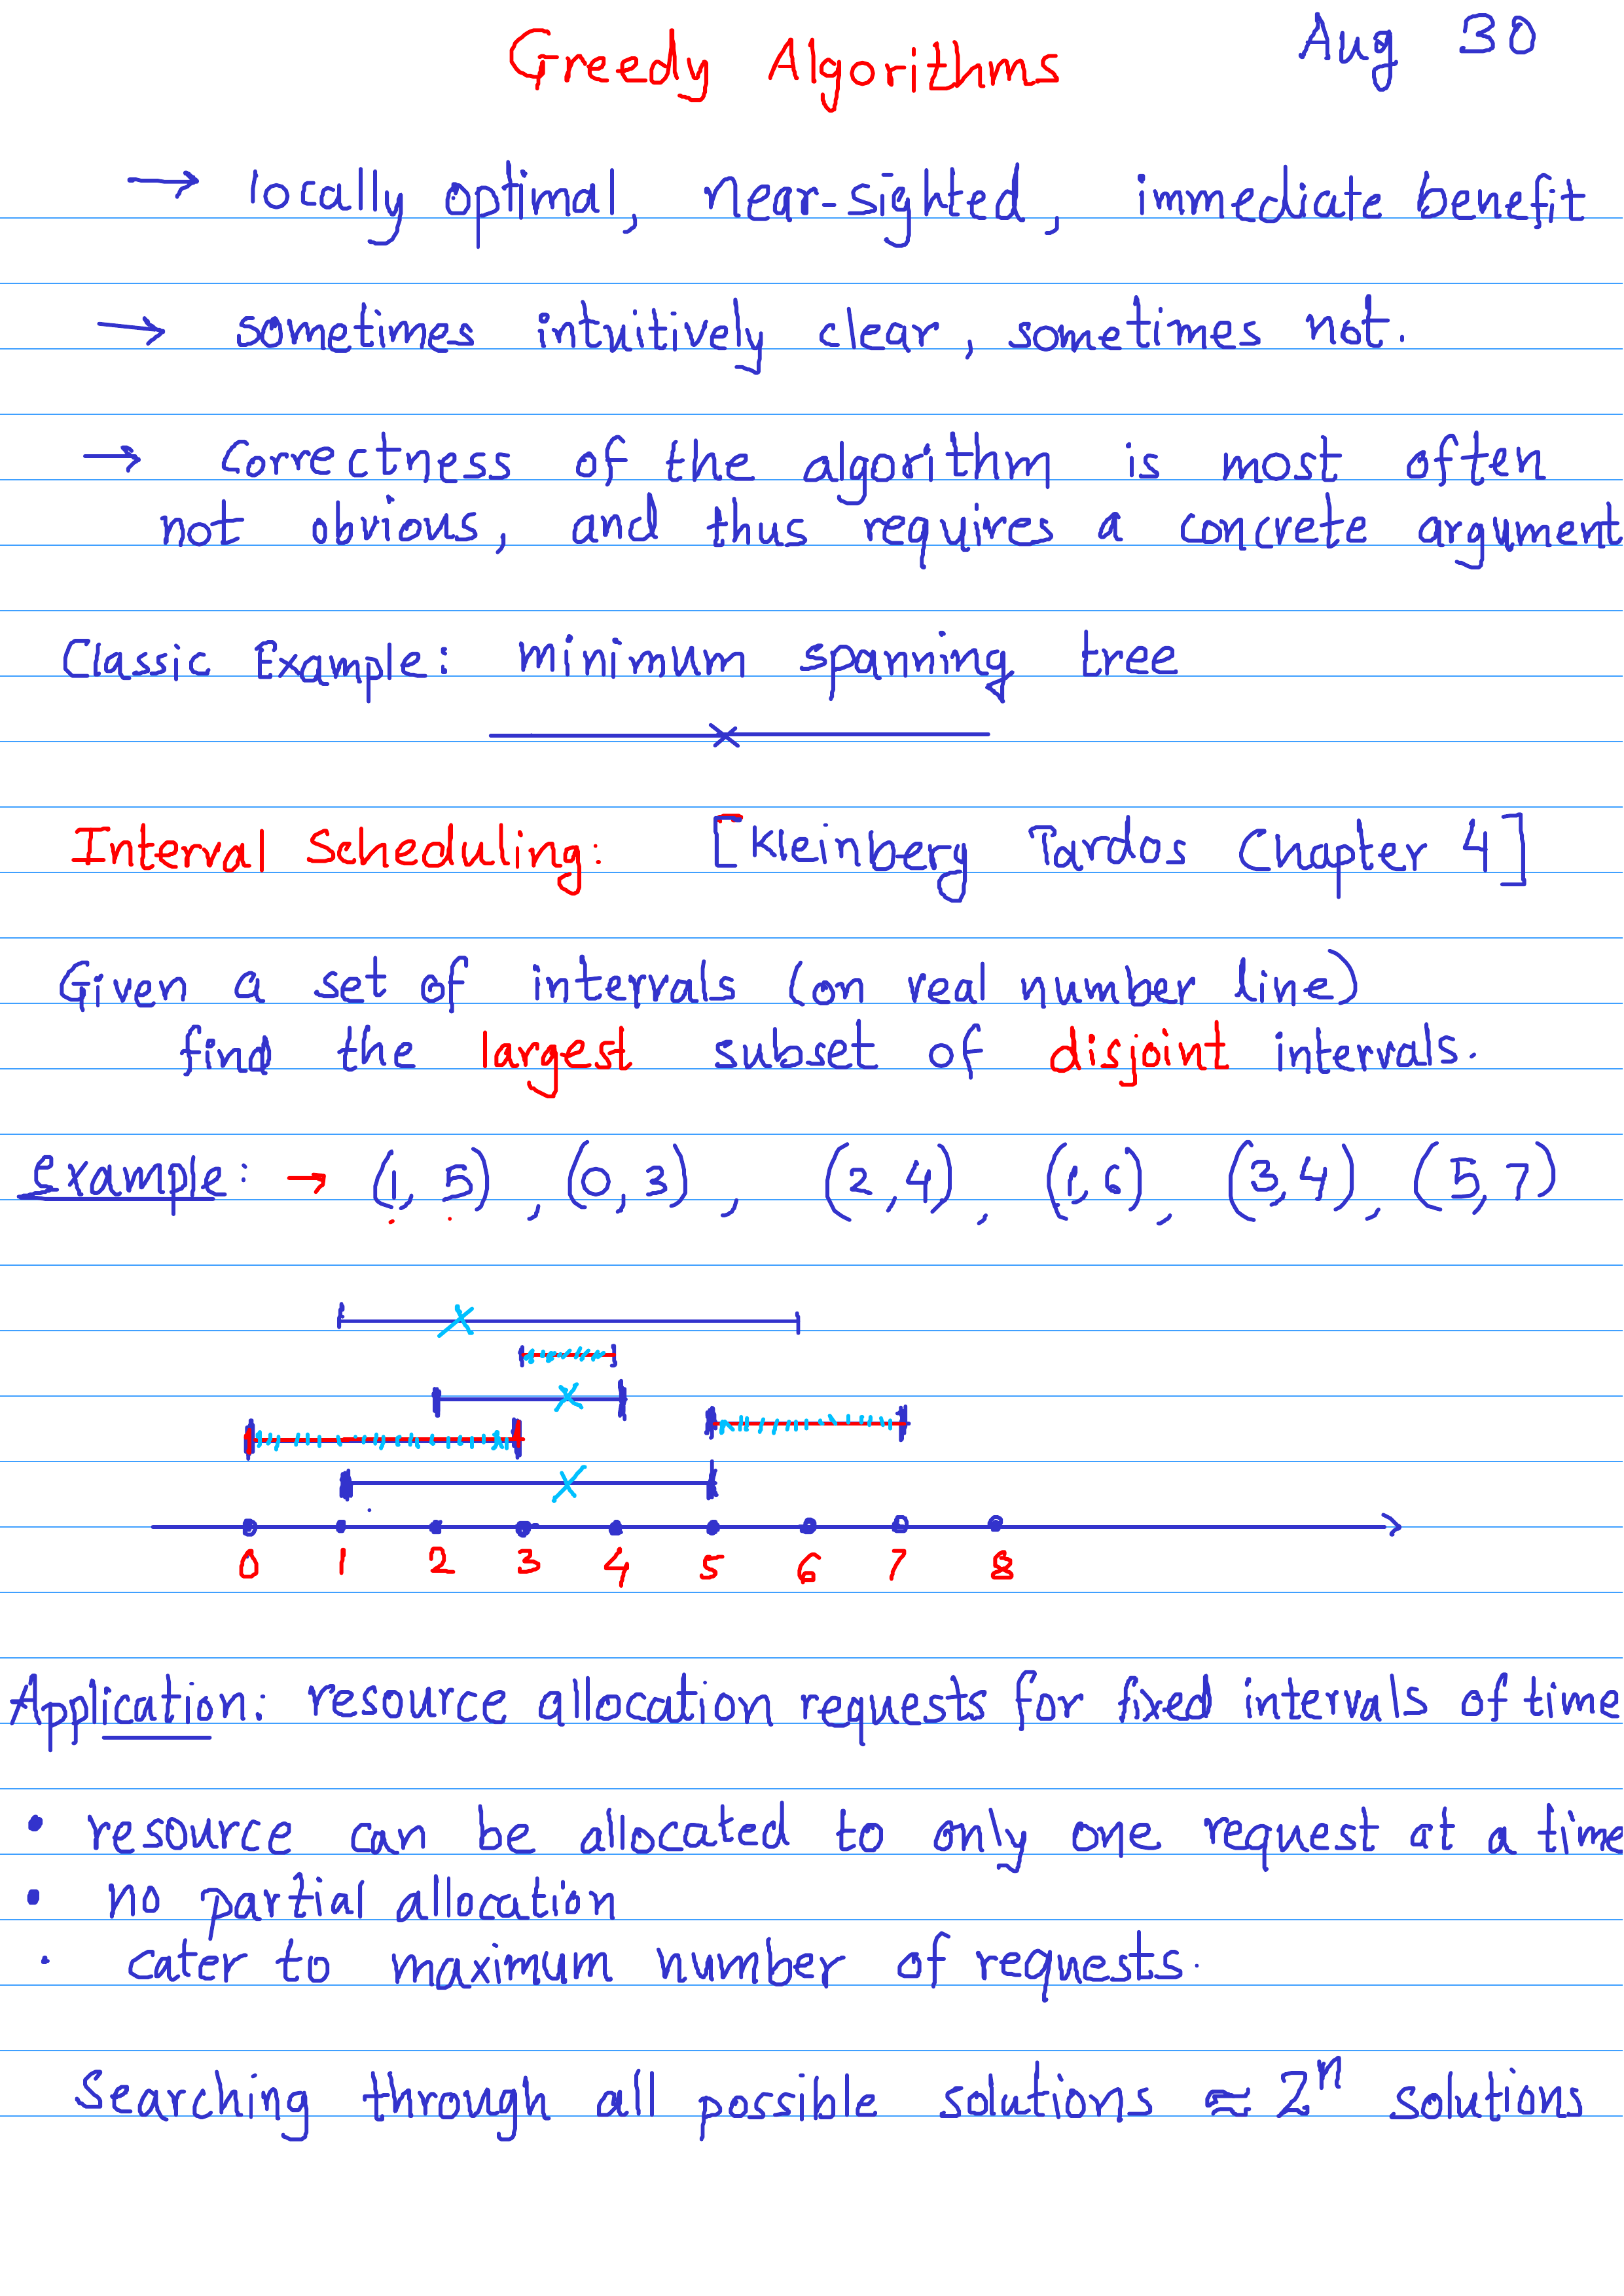 Greedy Algorithms
Aug 30
→ locally optimal, near-sighted, immediate benefit
→ sometimes intuitively clear, sometimes not.
→ Correctness of the algorithm is most often
not obvious, and thus requires a concrete argument
Classic Example: minimum spanning tree
Interval Scheduling: [Kleinberg Tardos Chapter 4]
Given a set of intervals (on real number line)
find the largest subset of disjoint intervals.
example: → (1, 5), (0, 3), (2, 4), (1, 6), (3, 4), (5, 7)
0 1 2 3 4 5 6 7 8
Application: resource allocation requests for fixed intervals of time
• resource can be allocated to only one request at a time
• no partial allocation
• cater to maximum number of requests.
Searching through all possible solutions ≈ 2^n solutions